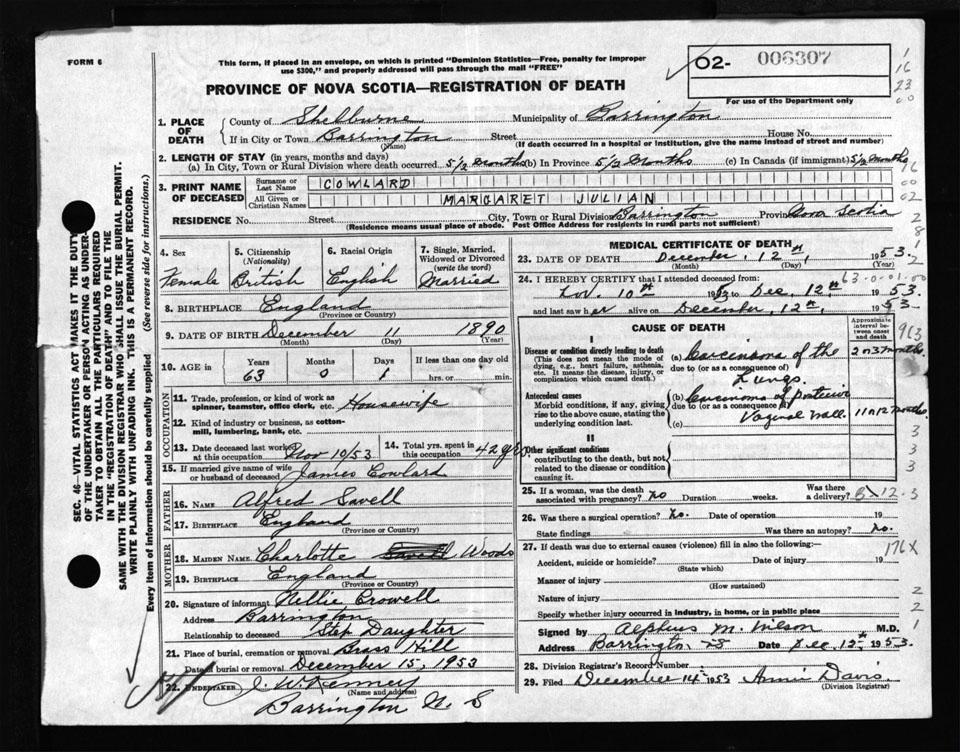 FORM 6
This form, if placed in an envelope, on which is printed "Dominion Statistics—Free, penalty for improper
use $300," and properly addressed will pass through the mail "FREE"
O2- 006307
For use of the Department only
PROVINCE OF NOVA SCOTIA—REGISTRATION OF DEATH
1. PLACE OF DEATH
County of Shelburne Municipality of Barrington
If in City or Town Barrington Street House No.
(Name) (If death occurred in a hospital or institution, give the name instead of street and number)
2. LENGTH OF STAY (in years, months and days)
(a) In City, Town or Rural Division where death occurred 5 1/2 months (b) In Province 5 1/2 Months (c) In Canada (if immigrant) 5 1/2 Months
3. PRINT NAME OF DECEASED
Surname or Last Name COWLARD
All Given or Christian Names MARGARET JULIAN
RESIDENCE No. Street City, Town or Rural Division Barrington Province Nova Scotia
(Residence means usual place of abode. Post Office Address for residents in rural parts not sufficient)
4. Sex
Female
5. Citizenship
(Nationality)
British
6. Racial Origin
English
7. Single, Married,
Widowed or Divorced
(write the word)
Married
8. BIRTHPLACE England
(Province or Country)
9. DATE OF BIRTH December 11 1890
(Month) (Day) (Year)
10. AGE in Years Months Days If less than one day old
63 0 1 hrs. or min.
OCCUPATION
11. Trade, profession, or kind of work as
spinner, teamster, office clerk, etc. Housewife
12. Kind of industry or business, as cotton-
mill, lumbering, bank, etc.
13. Date deceased last worked
at this occupation Nov 10/53
14. Total yrs. spent in
this occupation 42 yrs
15. If married give name of wife
or husband of deceased James Cowlard
FATHER
16. NAME Alfred Savell
17. BIRTHPLACE England
(Province or Country)
MOTHER
18. MAIDEN NAME Charlotte Woods
19. BIRTHPLACE England
(Province or Country)
20. Signature of informant Nellie Crowell
Address Barrington
Relationship to deceased Step Daughter
21. Place of burial, cremation or removal Brass Hill
Date of burial or removal December 15, 1953
22. UNDERTAKER J. W. Kenney
(Name and address)
Barrington N. S
MEDICAL CERTIFICATE OF DEATH
23. DATE OF DEATH December, 12th, 1953.
(Month) (Day) (Year)
24. I HEREBY CERTIFY that I attended deceased from:
Nov. 10th 1953 Dec. 12th 1953.
and last saw her alive on December, 12th, 1953.
CAUSE OF DEATH
Approximate
interval be-
tween onset
and death
I
Disease or condition directly leading to death
(This does not mean the mode of
dying, e.g., heart failure, asthenia,
etc. It means the disease, injury, or
complication which caused death.)
(a) Carcinoma of the
due to (or as a consequence of)
Lungs.
2 or 3 months
Antecedent causes
Morbid conditions, if any, giving
rise to the above cause, stating the
underlying condition last.
(b) Carcinoma of posterior
due to (or as a consequence of)
Vaginal wall. 11 or 12 months.
(c)
II
Other significant conditions
contributing to the death, but not
related to the disease or condition
causing it.
25. If a woman, was the death
associated with pregnancy? no Duration weeks. Was there
a delivery?
26. Was there a surgical operation? No. Date of operation 19
State findings Was there an autopsy? no.
27. If death was due to external causes (violence) fill in also the following:—
Accident, suicide or homicide? Date of injury 19
(State which)
Manner of injury
(How sustained)
Nature of injury
Specify whether injury occurred in industry, in home, or in public place
Signed by Alpheus M. Wilson M.D.
Address Barrington, NS Date Dec. 12th 1953.
28. Division Registrar's Record Number
29. Filed December 14th 1953 Annie Davis
(Division Registrar)
SEC. 46—VITAL STATISTICS ACT MAKES IT THE DUTY
OF THE UNDERTAKER OR PERSON ACTING AS UNDER-
TAKER TO OBTAIN ALL THE PARTICULARS REQUIRED
IN THE "REGISTRATION OF DEATH" AND TO FILE THE
SAME WITH THE DIVISION REGISTRAR WHO SHALL ISSUE THE BURIAL PERMIT.
WRITE PLAINLY WITH UNFADING INK. THIS IS A PERMANENT RECORD.
Every item of information should be carefully supplied (See reverse side for instructions.)
1
16
23
00
63-0-01.00
913
176X